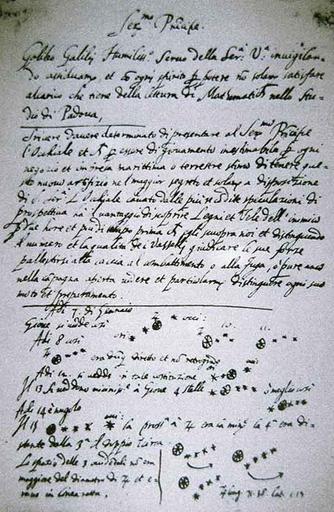 Ser.mo Prĩcipe.
Galileo Galilej Humiliss.o Servo della Ser.a V.a invigilan-
do assiduam.te et cõ ogni spirito p potere nõ solam satisfare
al carico che tiene della lettura di Mathematich nello Stu-
dio di Padova,
Scrivere d'avere determinato di presentare al Ser.mo Prĩcipe
l'Occhiale et p essere di giovamento inestimabile p ogni
negozio et impresa marittima o terrestre stimo di tenere que-
sto nuovo artifizio nel maggior segreto et solam a disposizione
di S. Ser.a L'Occhiale cavato dalle più recõdite speculazioni di
prospettiva ha il vantaggio di scoprire Legni et Vele dell'inimico
p due hore et più di tempo prima ch egli scuopra noi et distinguendo
il numero et la qualità de i Vasselli giudicare le sue forze
pallestirsi alla caccia al combattimento o alla fuga, o pure anco
nella cãpagna aperta vedere et particolarm distinguere ogni suo
moto et preparamento.
Adi 7. di Gennaio
Giove si vede così
Adi 8 così
era diretto et nõ retrogrado
Adi 12. si vedde in tale costituzione
Il 13 si veddono à Giove 4 stelle
Adi 14 è nugolo
Il 15 la pross.a à ♃ era la min.e la 4.a era di-
stante dalla 3.a il doppio
Lo spazio delle 3 nõ era
maggiore del diametro di ♃ et e-
rano in linea retta.